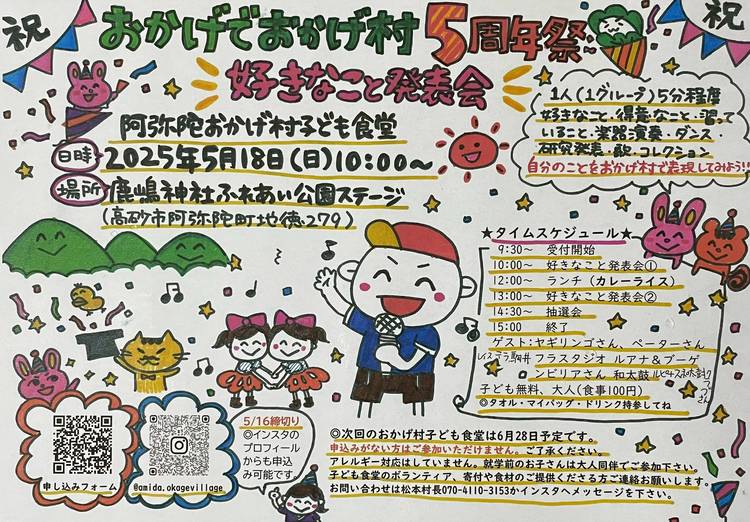 祝
おかげでおかげ村5周年祭
祝
好きなこと発表会
阿弥陀おかげ村子ども食堂
日時 2025年5月18日(日)10:00〜
場所 鹿嶋神社ふれあい公園ステージ
(高砂市阿弥陀町地徳279)
1人(1グループ)5分程度
好きなこと・得意なこと・習って
いること・楽器演奏・ダンス・
研究発表・歌・コレクション
自分のことをおかげ村で表現してみよう!!
★タイムスケジュール★
9:30〜 受付開始
10:00〜 好きなこと発表会①
12:00〜 ランチ(カレーライス)
13:00〜 好きなこと発表会②
14:30〜 抽選会
15:00 終了
ゲスト:ヤギリンゴさん、ペーターさん
フラスタジオ ルアナ&プーゲ
ンビリアさん 和太鼓
子ども無料、大人(食事100円)
◎タオル・マイバッグ・ドリンク持参してね
申し込みフォーム
@amida.okagevillage
5/16締切り
◎インスタの
プロフィール
からも申込
み可能です
◎次回のおかげ村子ども食堂は6月28日予定です。
申込みがない方はご参加いただけません。ご了承ください。
アレルギー対応はしていません。就学前のお子さんは大人同伴でご参加下さい。
子ども食堂のボランティア、寄付や食材のご提供くださる方ご連絡お願いします。
お問い合わせは松本村長070-4110-3153かインスタへメッセージを下さい。